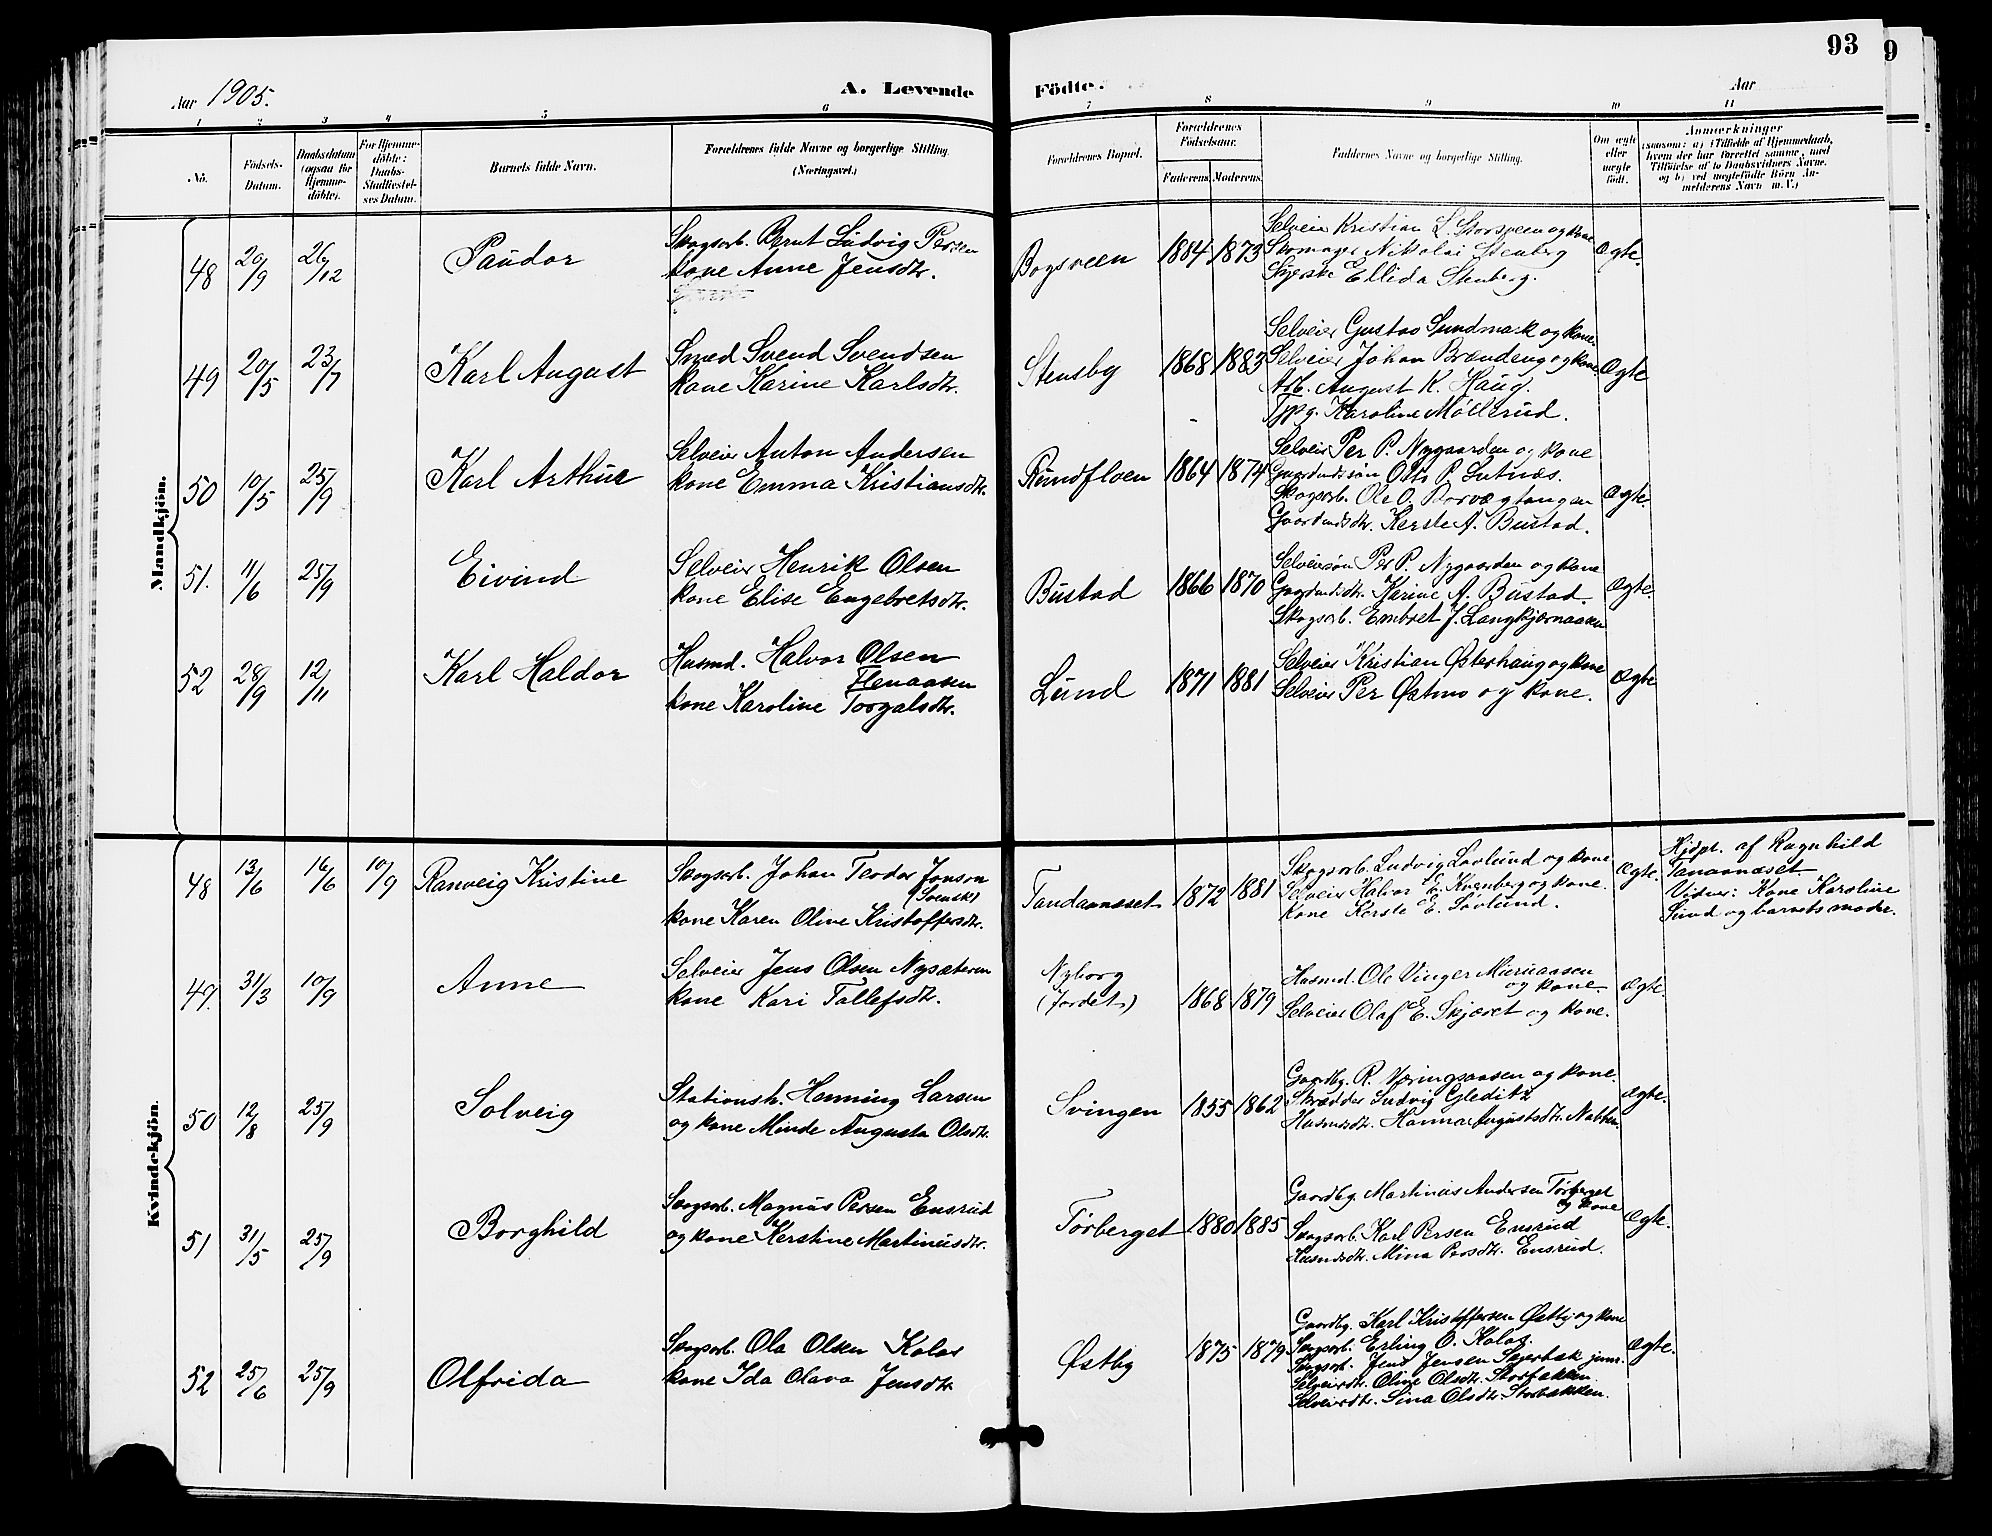 93
9
Aar 1905.
A. Levende
Födte.
Aar
1 2 3 4 5 6 7 8 9 10 11
No.
Födsels-
Datum.
Daabsdatum
(ogsaa for
Hjemme-
döbte).
For Hjemme-
döbte:
Daabs-
Stadfæstel-
ses Datum.
Barnets fulde Navn.
Forældrenes fulde Navne og borgerlige Stilling.
(Næringsvei.)
Forældrenes Bopæl.
Forældrenes
Födselsaar.
Faderens. Moderens.
Faddernes Navne og borgerlige Stilling.
Om ægte
eller
uægte
födt.
Anmærkninger
(saasom: a) i Tilfælde af Hjemmedaab,
hvem der har forrettet samme, med
Tilföielse af to Daabsvidners Navne,
og b) ved uægtefödte Börn An-
melderens Navn m. V.)
Mandkjön.
48 20/9 26/12 Paudor
Skogsarb. Bernt Ludvig Persen
kone Anne Jensdtr.
Bogsveen 1884 1873
Selveier Kristian L. Storsveen og kone
Skomager Nikolai Stenberg
Syerske Ellida Stenberg.
Ægte.
49 20/5 23/7 Karl August
Smed Svend Svendsen
kone Karine Karlsdtr.
Stensby 1868 1883
Selveier Gustav Sundmark og kone.
Selveier Johan Brændeng og kone
Arb. August K. Haug.
Tjpg. Karoline Møllerud.
Ægte
50 10/5 25/9 Karl Arthur
Selveier Anton Andersen
kone Emma Kristiansdtr.
Rundfloen 1864 1874
Selveier Per P. Nygaarden og kone
Gaardmdssøn Otto P. Lutnæs.
Skogsarb. Ole O. Borvægtangen
Gaardmdsdtr. Kerste A. Bustad.
Ægte.
51. 11/6 25/9 Eivind
Selveier Henrik Olsen
kone Elise Engebretsdtr.
Bustad 1866 1870
Selveiersøn Per P. Nygaarden og kone
Gaardmdsdtr. Karine A. Bustad.
Skogsarb. Embret J. Langkjernaasen
Ægte.
52 28/9 12/11 Karl Haldor
Husmd. Halvor Olsen
Flenaasen
kone Karoline Torgalsdtr.
Lund 1871 1881
Selveier Kristian Østerhaug og kone
Selveier Per Østmo og kone.
Ægte
Kvindekjön.
48 13/6 16/6 10/9 Ranveig Kristine
Skogsarb. Johan Teodor Jonson
(Svensk)
kone Karen Olive Kristoffersdtr.
Tandaanæset 1872 1881
Skogsarb. Ludvig Løvlund og kone
Selveier Halvor E. Kvenberg og kone.
Kone Kerste E. Løvlund.
Ægte.
Hjdpt. af Ragnhild
Tanaanæset.
Vidner: Kone Karoline
Lund og barnets moder.
49. 31/3 10/9 Anne
Selveier Jens Olsen Nysæteren
kone Kari Tollefsdtr.
Nyborg
(Jordet)
1868 1879
Husmd. Ole Vinger Muruaasen
og kone.
Selveier Olaf E. Skjæret og kone.
Ægte.
50 12/8 25/9 Solveig
Stationsh. Henning Larsen
og kone Minde Augusta Olsdtr.
Svingen 1855 1862
Gaardbg. R. Væringsaasen og kone.
Skrædder Ludvig Gleditz
Husmdsdtr. Hanna Augustsdtr. Nabben.
Ægte.
51 31/5 25/9 Borghild
Skogsarb. Magnus Persen Ensrud
og kone Kerstine Martinusdtr.
Tørberget 1880 1885
Gaardbg. Martinus Andersen Tørberget
og kone
Skogsarb. Karl Persen Ensrud
Husmdsdtr. Mina Persdtr. Ensrud.
Ægte.
52 25/6 25/9 Olfrida
Skogsarb. Ola Olsen Kolos
kone Ida Olava Jensdtr
Østby 1875 1879
Gaardbg. Karl Kristoffersen Østby og kone
Skogsarb. Erling O. Kolos.
Skogsarb. Jens Jensen Sæjerbak jun.
Selveierdtr. Oline Olsdtr. Storbakken.
Selveierdtr. Lina Olsdtr. Storbakken.
Ægte.